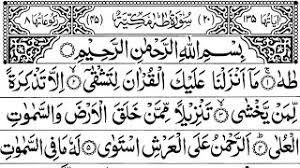 اٰیاتها ١٣٥ (٢٠) سُوْرَةُ طٰهٰ مَكِّیَّةٌ (٤٥) رُكُوْعَاتُهَا ٨
بِسْمِ اللّٰهِ الرَّحْمٰنِ الرَّحِیْمِ
طٰهٰ ۚ مَاۤ اَنْزَلْنَا عَلَیْكَ الْقُرْاٰنَ لِتَشْقٰۤى ۙ اِلَّا تَذْكِرَةً
لِّمَنْ یَّخْشٰى ۙ تَنْزِیْلًا مِّمَّنْ خَلَقَ الْاَرْضَ وَ السَّمٰوٰتِ
الْعُلٰى ؕ اَلرَّحْمٰنُ عَلَى الْعَرْشِ اسْتَوٰى ۝ لَهٗ مَا فِی السَّمٰوٰتِ